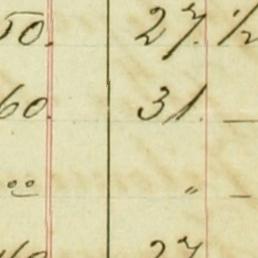 50. 27. 1/2
60. 31. —
" " —
27